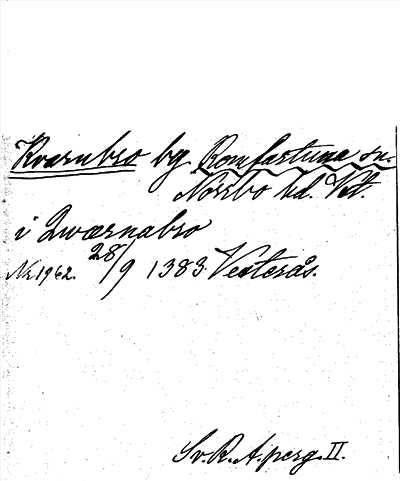 Kvarnbro by Romfartuna sn.
Norrbo hd. Vstl.
i Qwærnabro
Nr 1962. 28/9 1383. Vesterås.
Sv. R. A. perg. II.